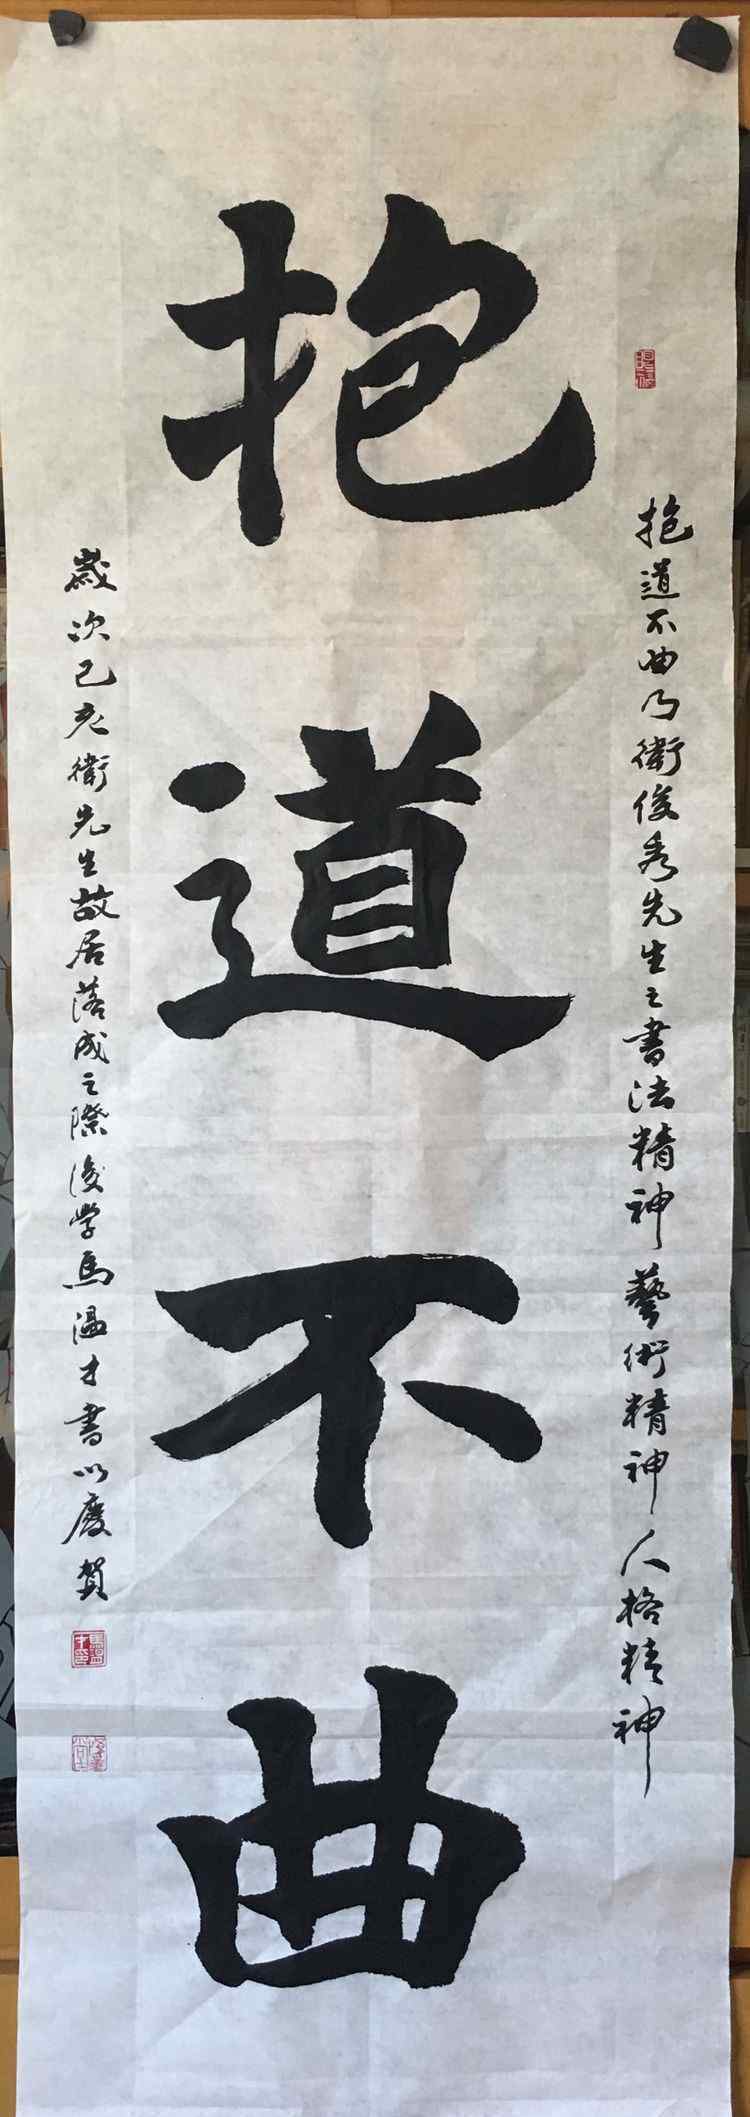 抱道不曲
抱道不曲乃衛俊秀先生之書法精神藝術精神人格精神
歲次己亥衛先生故居落成之際後学馬温才書以慶賀
馬温才印